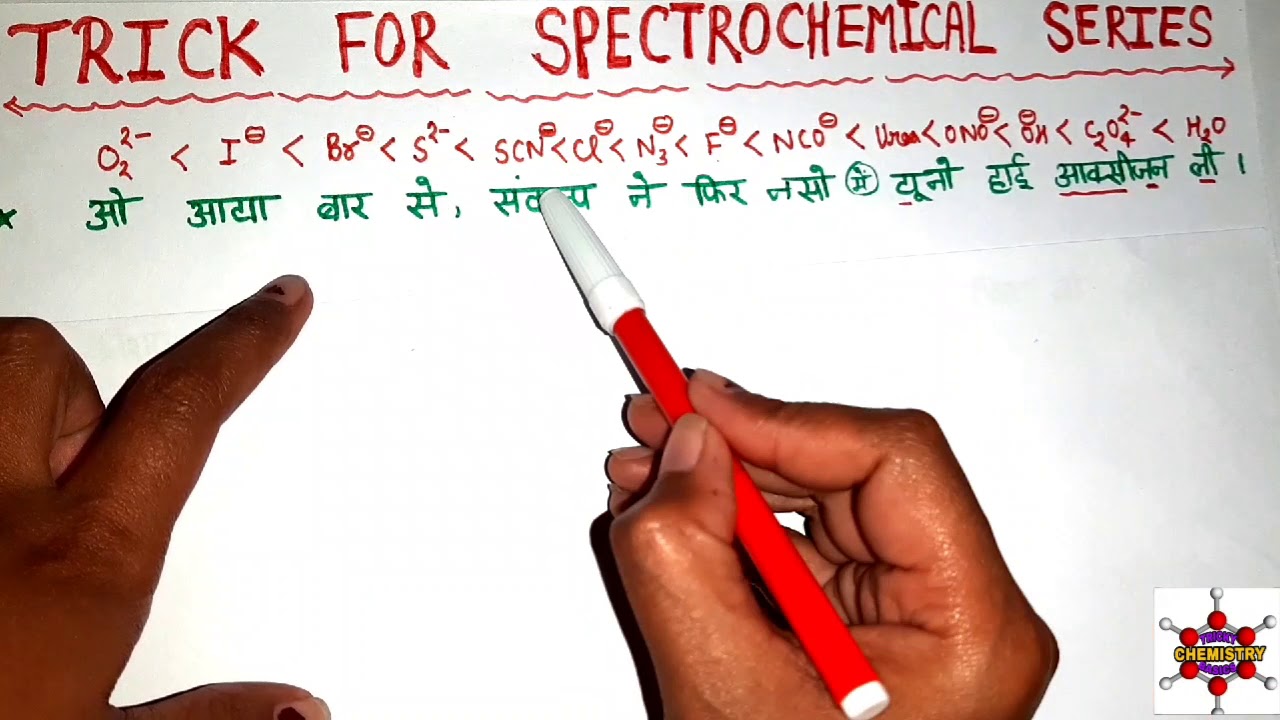 TRICK FOR SPECTROCHEMICAL SERIES
O₂²⁻ < I⊖ < Br⊖ < S²⁻ < SCN⊖ < Cl⊖ < N₃⊖ < F⊖ < NCO⊖ < Urea < ONO⊖ < OH⊖ < C₂O₄²⁻ < H₂O
* ओ आया बार से, ने फिर नसो (में) यूनो हाई आक्सीजन ली।
TRICKY
CHEMISTRY
BASICS